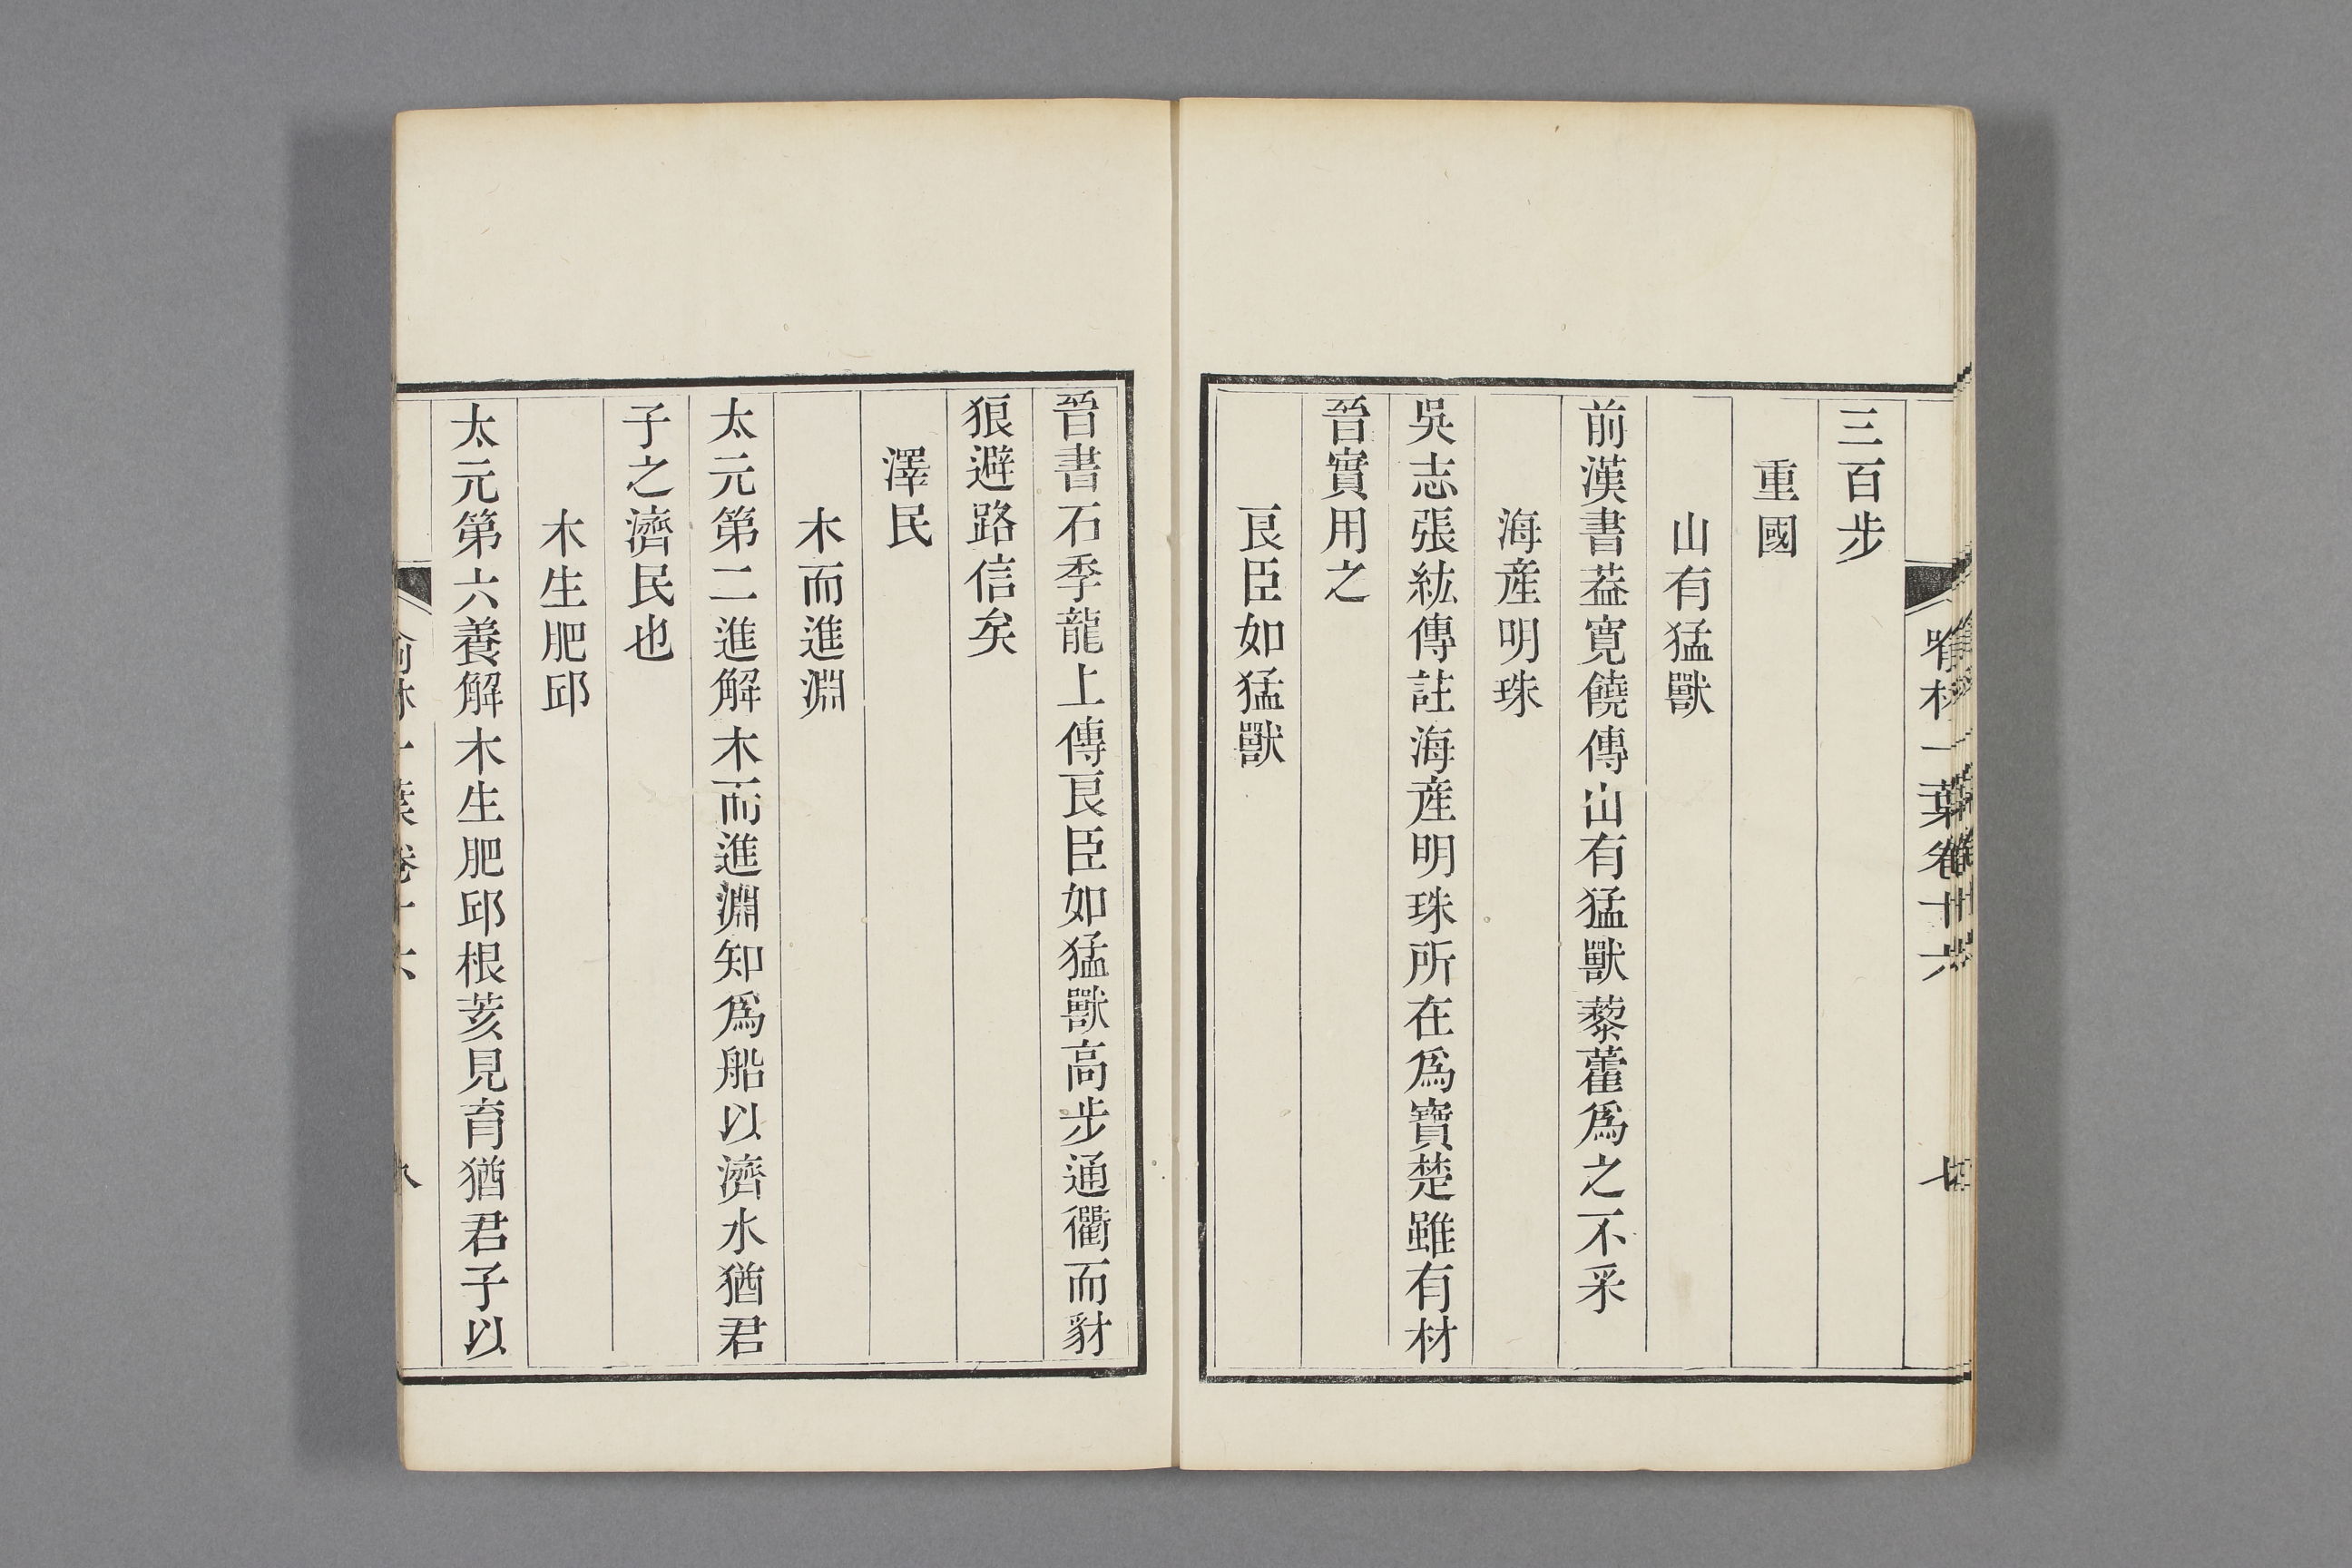 三百步
重國
山有猛獸
前漢書葢寬饒傳山有猛獸藜藿爲之不采
海產明珠
吳志張紘傳註海產明珠所在爲寶楚雖有材
晉實用之
良臣如猛獸
晉書石季龍上傳良臣如猛獸高步通衢而豺
狼避路信矣
澤民
木而進淵
太元第二進解木而進淵知爲船以濟水猶君
子之濟民也
木生肥邱
太元第六養解木生肥邱根荄見育猶君子以
一葉卷十六
七